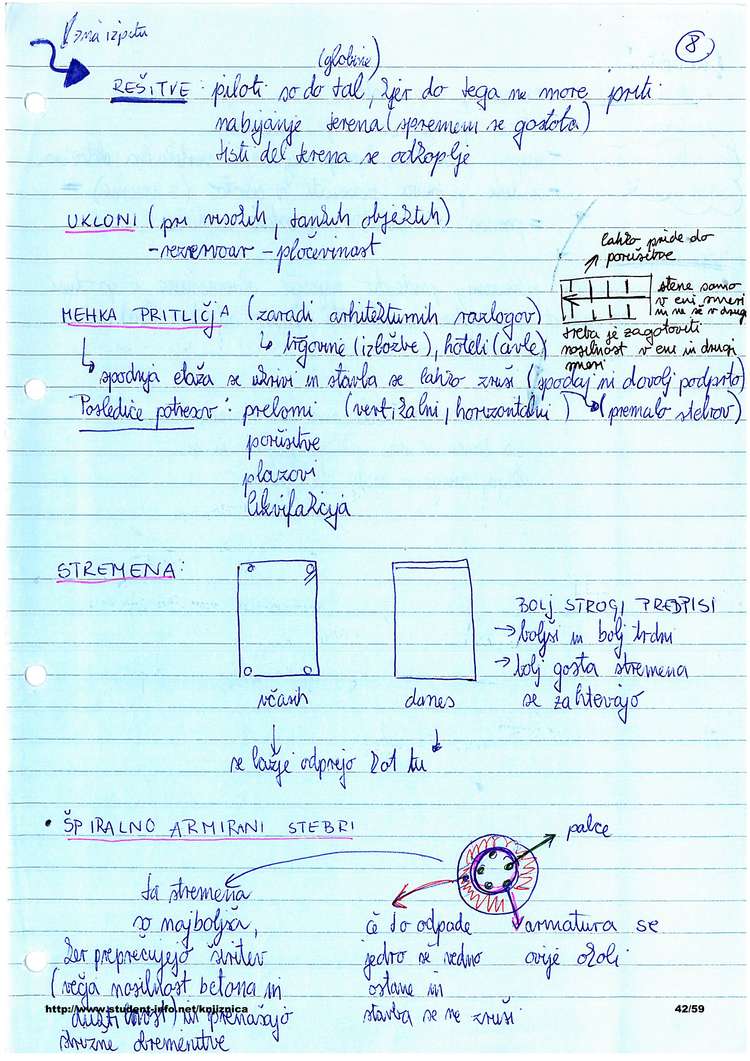 ima izpitu
8
(globine)
REŠITVE: piloti so do tal, kjer do tega ne more priti
nabijanje terena (spremeni se gostota)
tisti del terena se odkoplje
UKLONI (pri visokih, tankih objektih)
- rezervoar - pločevinast
lahko pride do
porušitve
stene samo
v eni smeri
in ne še v drugi
treba je zagotoviti
nosilnost v eni in drugi
smeri
MEHKA PRITLIČJA (zaradi arhitekturnih razlogov)
↳ trgovine (izložbe), hoteli (avle)
↳ spodnja etaža se ukrivi in stavba se lahko zruši (spodaj ni dovolj podprto)
Posledice potresov: prelomi (vertikalni, horizontalni) (premalo stebrov)
porušitve
plazovi
likvifakcija
STREMENA:
BOLJ STROGI PREDPISI
→ boljši in bolj trdni
→ bolj gosta stremena
se zahtevajo
včasih danes
se lažje odprejo kot tu
• ŠPIRALNO ARMIRANI STEBRI
palce
ta stremena
so najboljša,
ker preprečujejo širitev
(veča nosilnost betona in
duktilnost) in prenašajo
strižne obremenitve
če to odpade
jedro še vedno
ostane in
stavba se ne zruši
armatura se
ovije okoli
http://www.student-info.net/knjiznica
42/59